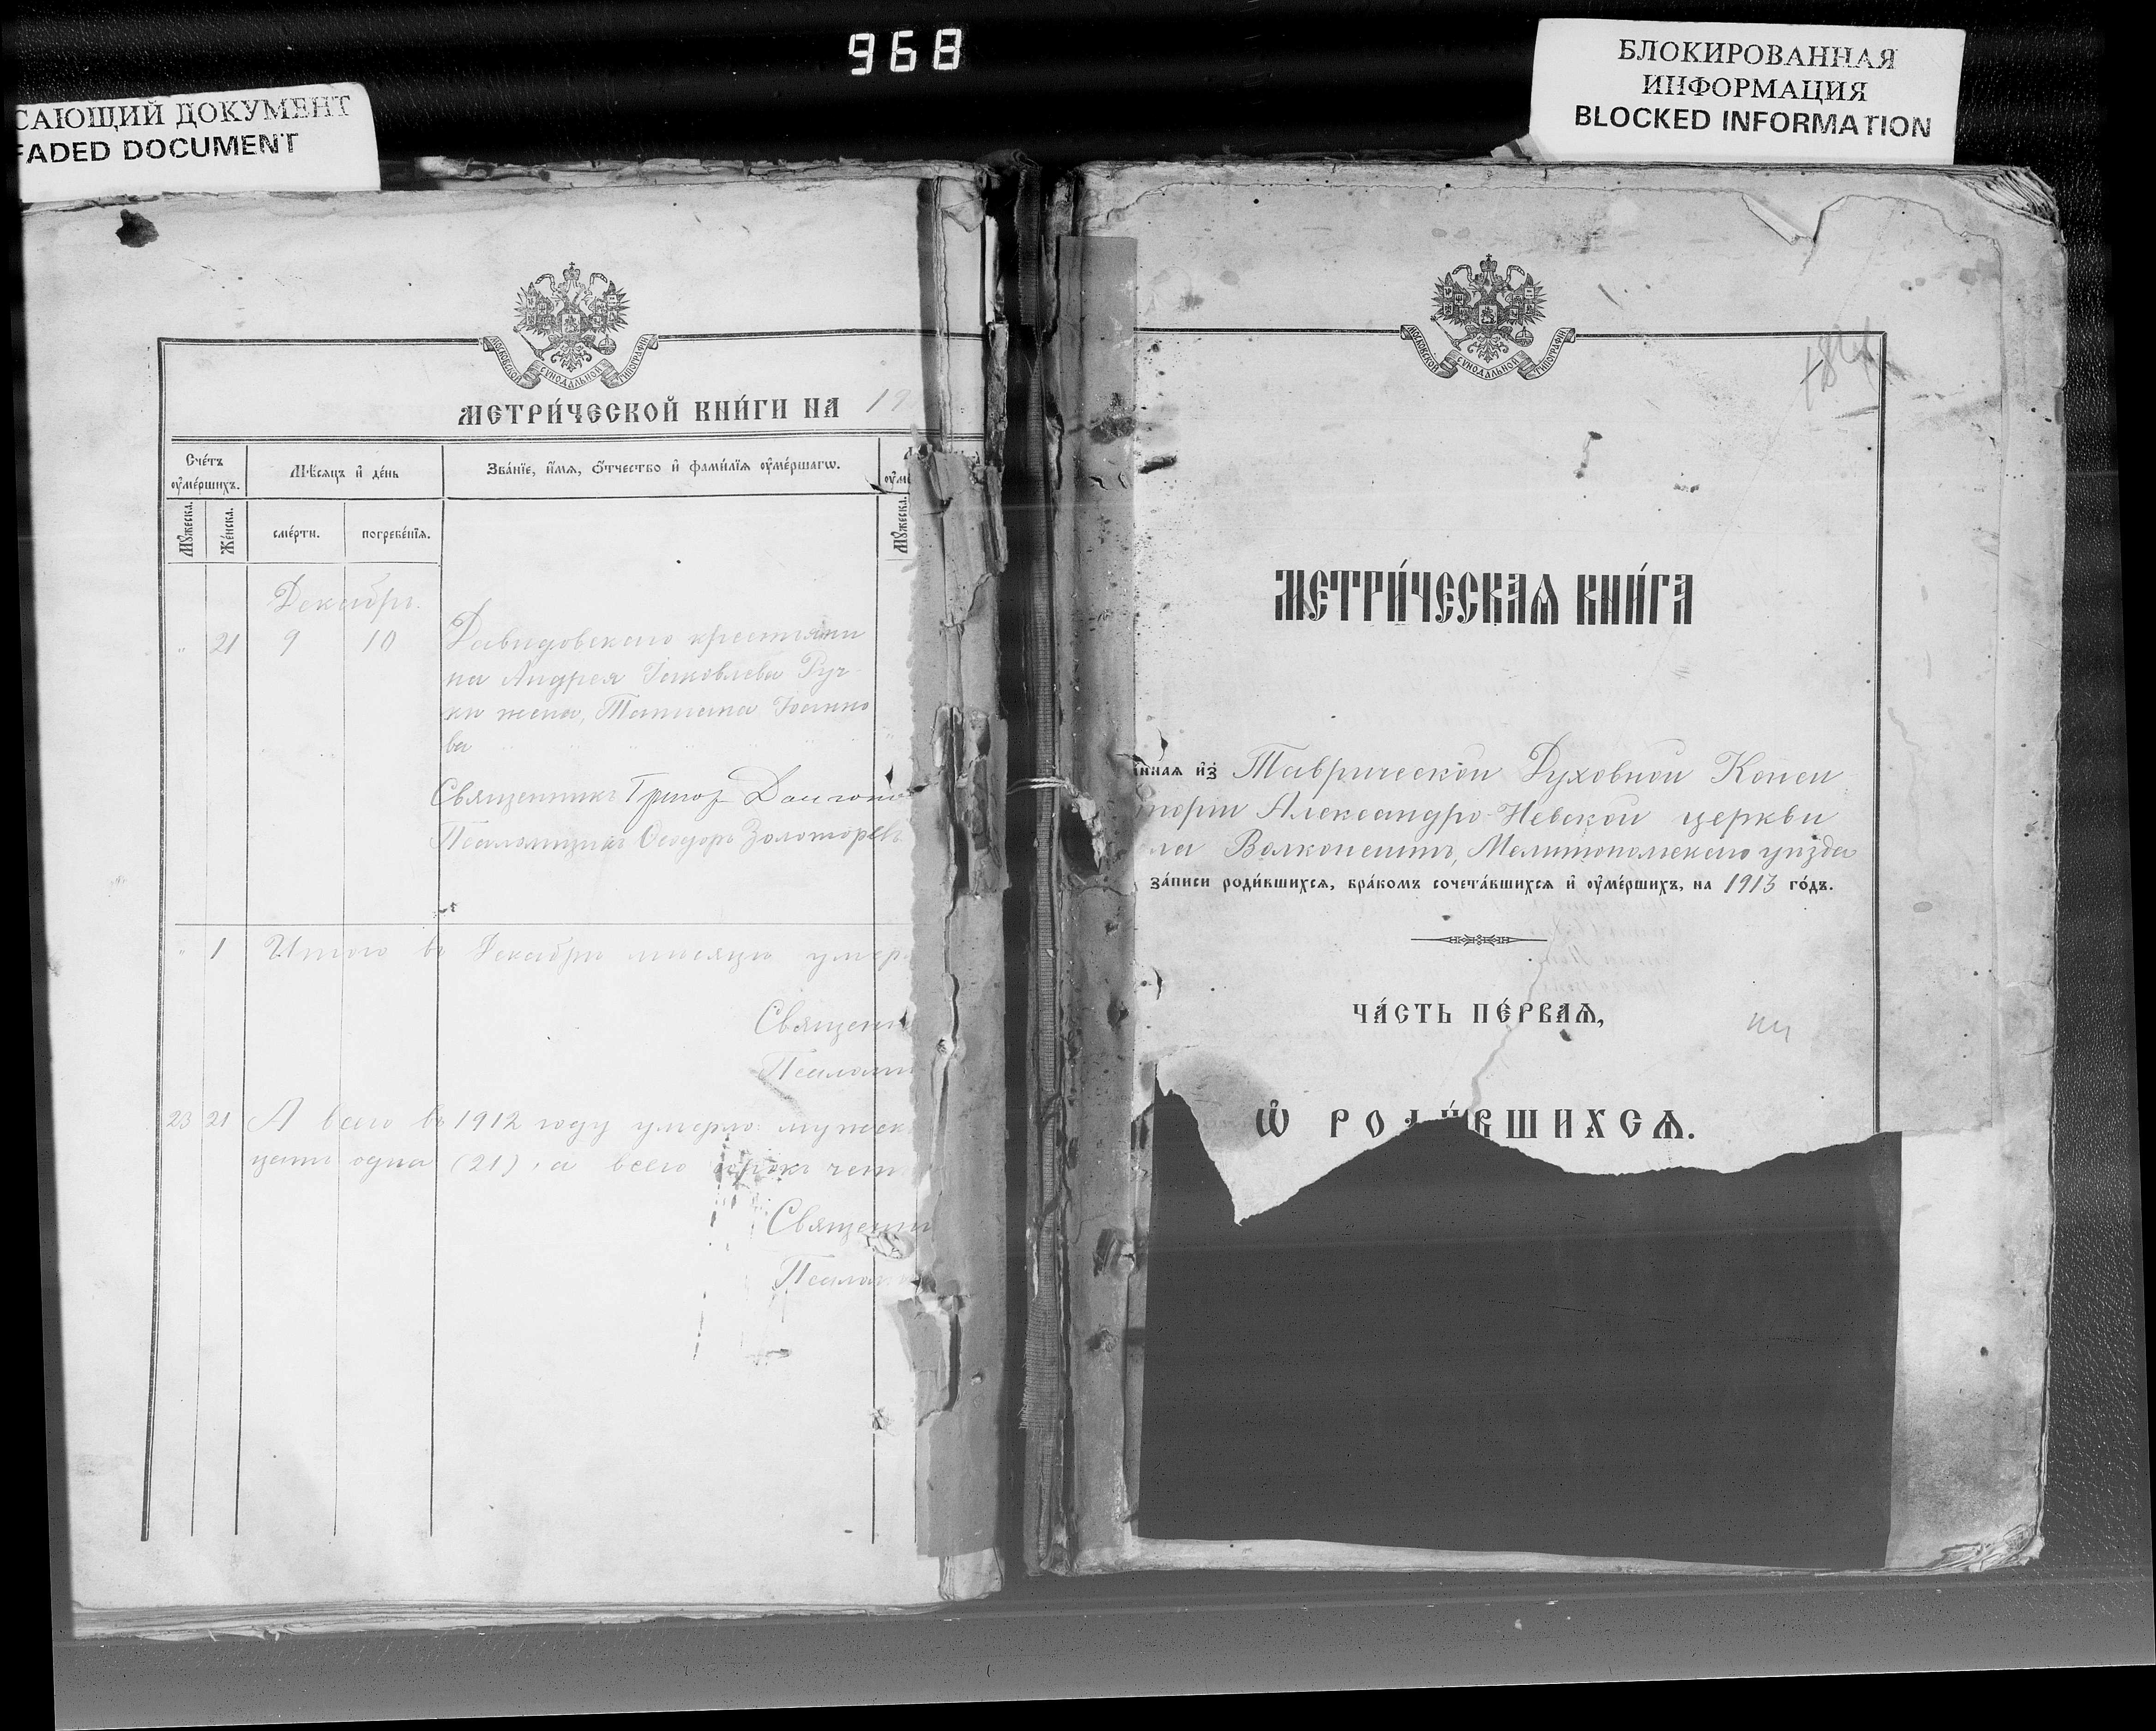 968
САЮЩИЙ ДОКУМЕНТ
FADED DOCUMENT
БЛОКИРОВАННАЯ
ИНФОРМАЦИЯ
BLOCKED INFORMATION
МОСКОВСКОЙ СѴНОДАЛЬНОЙ ТИПОГРАФІИ
МЕТРИ́ЧЕСКОЙ КНИ́ГИ НА 19
Сче́тъ оу҆ме́ршихъ.
Мѣ́сяцъ и҆ де́нь
Зва́нїе, и҆́мѧ, ѻ҆́тчество и҆ фами́лїѧ оу҆ме́ршагѡ.
Мꙋ́жеска.
Же́нска.
сме́рти.
погребе́нїѧ.
Мꙋ́жеска.
Декабрь.
" 21 9 10 Давидовскаго крестьяни
на Андрея Іаковлева Руч-
ки жена, Татіана Іоанно
ва
Священникъ Григор
Псаломщикъ Ѳеодоръ Золоторевъ
" 1 Итого въ Декабрѣ мѣсяцѣ умер
Священн
Псаломщ
23 21 А всего въ 1912 году умерло: мужск
цать одна (21), а всего сорокъ чет
Священни
Псалом
МОСКОВСКОЙ СѴНОДАЛЬНОЙ ТИПОГРАФІИ
МЕТРИ́ЧЕСКАѦ КНИ́ГА
ннаѧ и҆з̾ Таврической Духовной Конси
торіи Александро-Невской церкви
ла Волконештъ, Мелитопольскаго уѣзда
за́писи роди́вшихсѧ, бра́комъ сочета́вшихсѧ и҆ оу҆ме́ршихъ, на 1913 го́дъ.
ЧА́СТЬ ПЕ́РВАѦ,
Ѡ҆ РОДИ́ВШИХСѦ.